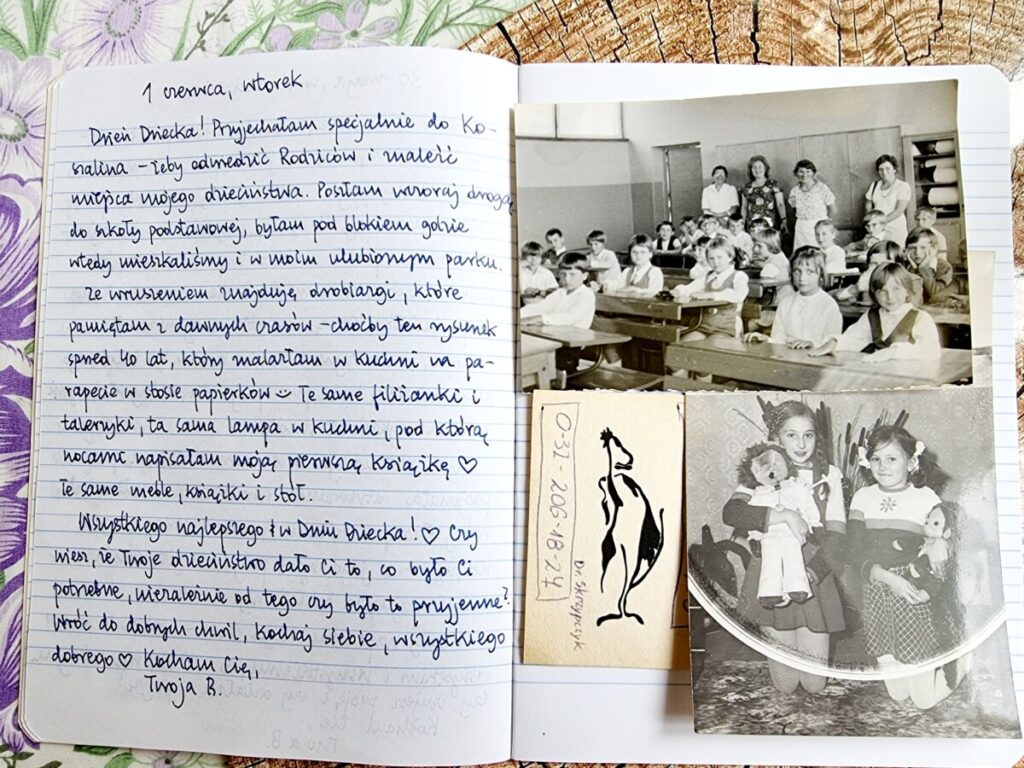 1 czerwca, wtorek
Dzień Dziecka! Przyjechałam specjalnie do Ko-
szalina – żeby odwiedzić Rodziców i znaleźć
miejsca mojego dzieciństwa. Poszłam wczoraj drogą
do szkoły podstawowej, byłam pod blokiem gdzie
wtedy mieszkaliśmy i w moim ulubionym parku.
Ze wzruszeniem znajduję drobiazgi, które
pamiętam z dawnych czasów – choćby ten rysunek
sprzed 40 lat, który znalazłam w kuchni na pa-
rapecie w stosie papierków Te same filiżanki i
talerzyki, ta sama lampa w kuchni, pod którą
nocami napisałam moją pierwszą książkę ♡
Te same meble, książki i stół.
Wszystkiego najlepszego w Dniu Dziecka! ♡ Czy
wiesz, że Twoje dzieciństwo dało Ci to, co było Ci
potrzebne, niezależnie od tego czy było to przyjemne?
Wróć do dobrych chwil, kochaj siebie, wszystkiego
dobrego ♡ Kocham Cię,
Twoja B.
0-32-206-18-24
Dr. Skrzypczyk